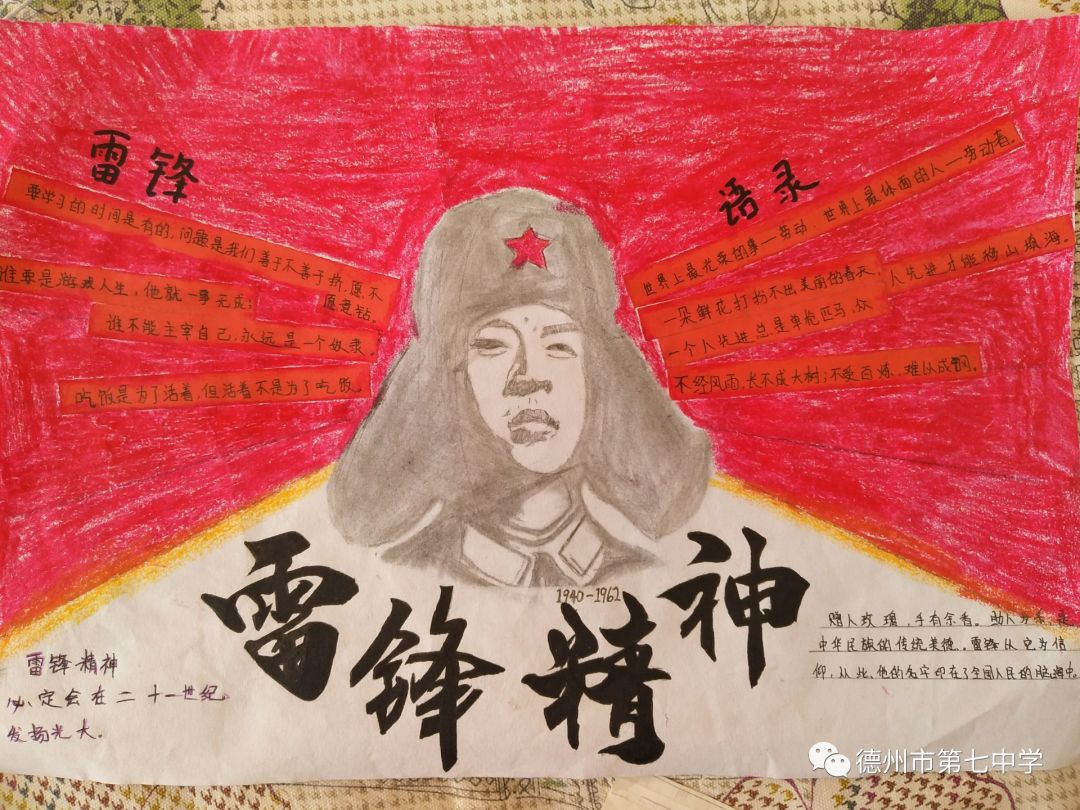 雷锋
语录
要学习的时间是有的,问题是我们善于不善于挤,愿不
愿意钻。
谁要是游戏人生,他就一事无成;
谁不能主宰自己,永远是一个奴隶。
吃饭是为了活着,但活着不是为了吃饭。
世界上最光荣的事—劳动,世界上最体面的人—劳动者。
一朵鲜花打扮不出美丽的春天,
一个人先进总是单枪匹马,众
人先进才能移山填海。
不经风雨,长不成大树;不受百炼,难以成钢。
1940-1962
雷锋精神
雷锋精神
必定会在二十一世纪
发扬光大。
赠人玫瑰,手有余香。助人为乐,是
中华民族的传统美德。雷锋从它为信
仰,从此,他的名字印在了全国人民的脑海中。
德州市第七中学